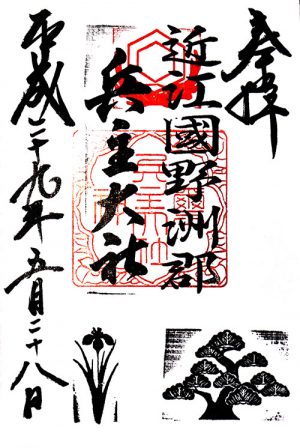 奉拝
近江國野洲郡
兵主大社
平成二十九年五月二十八日